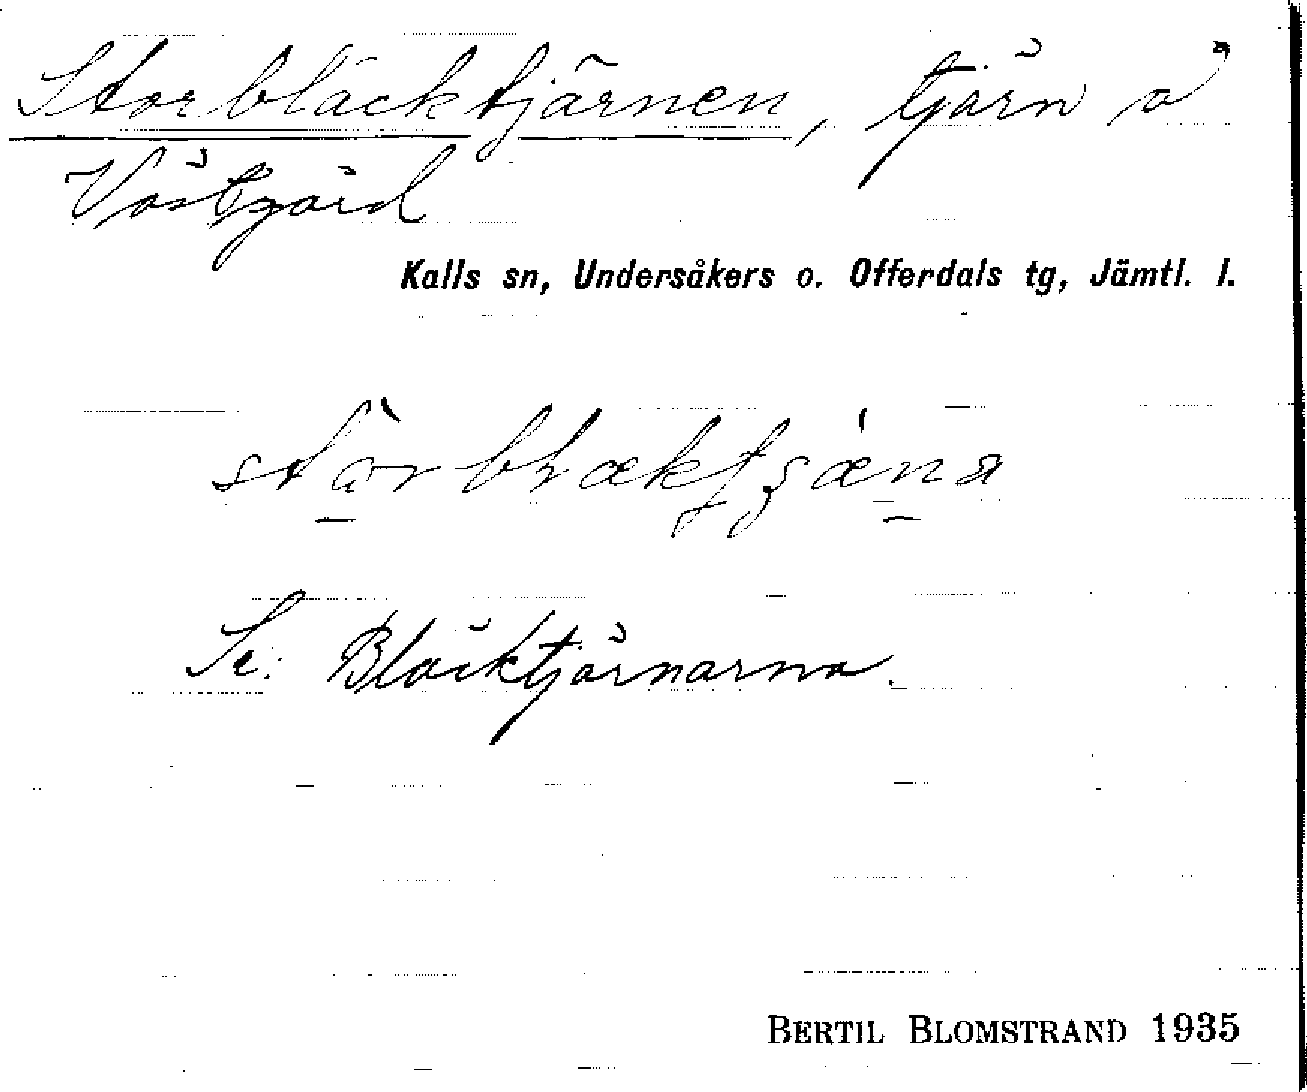 Storbläcktjärnen, tjärn å
Västgård
Kalls sn, Undersåkers o. Offerdals tg, Jämtl. l.
Se: Bläcktjärnarna.
BERTIL BLOMSTRAND 1935